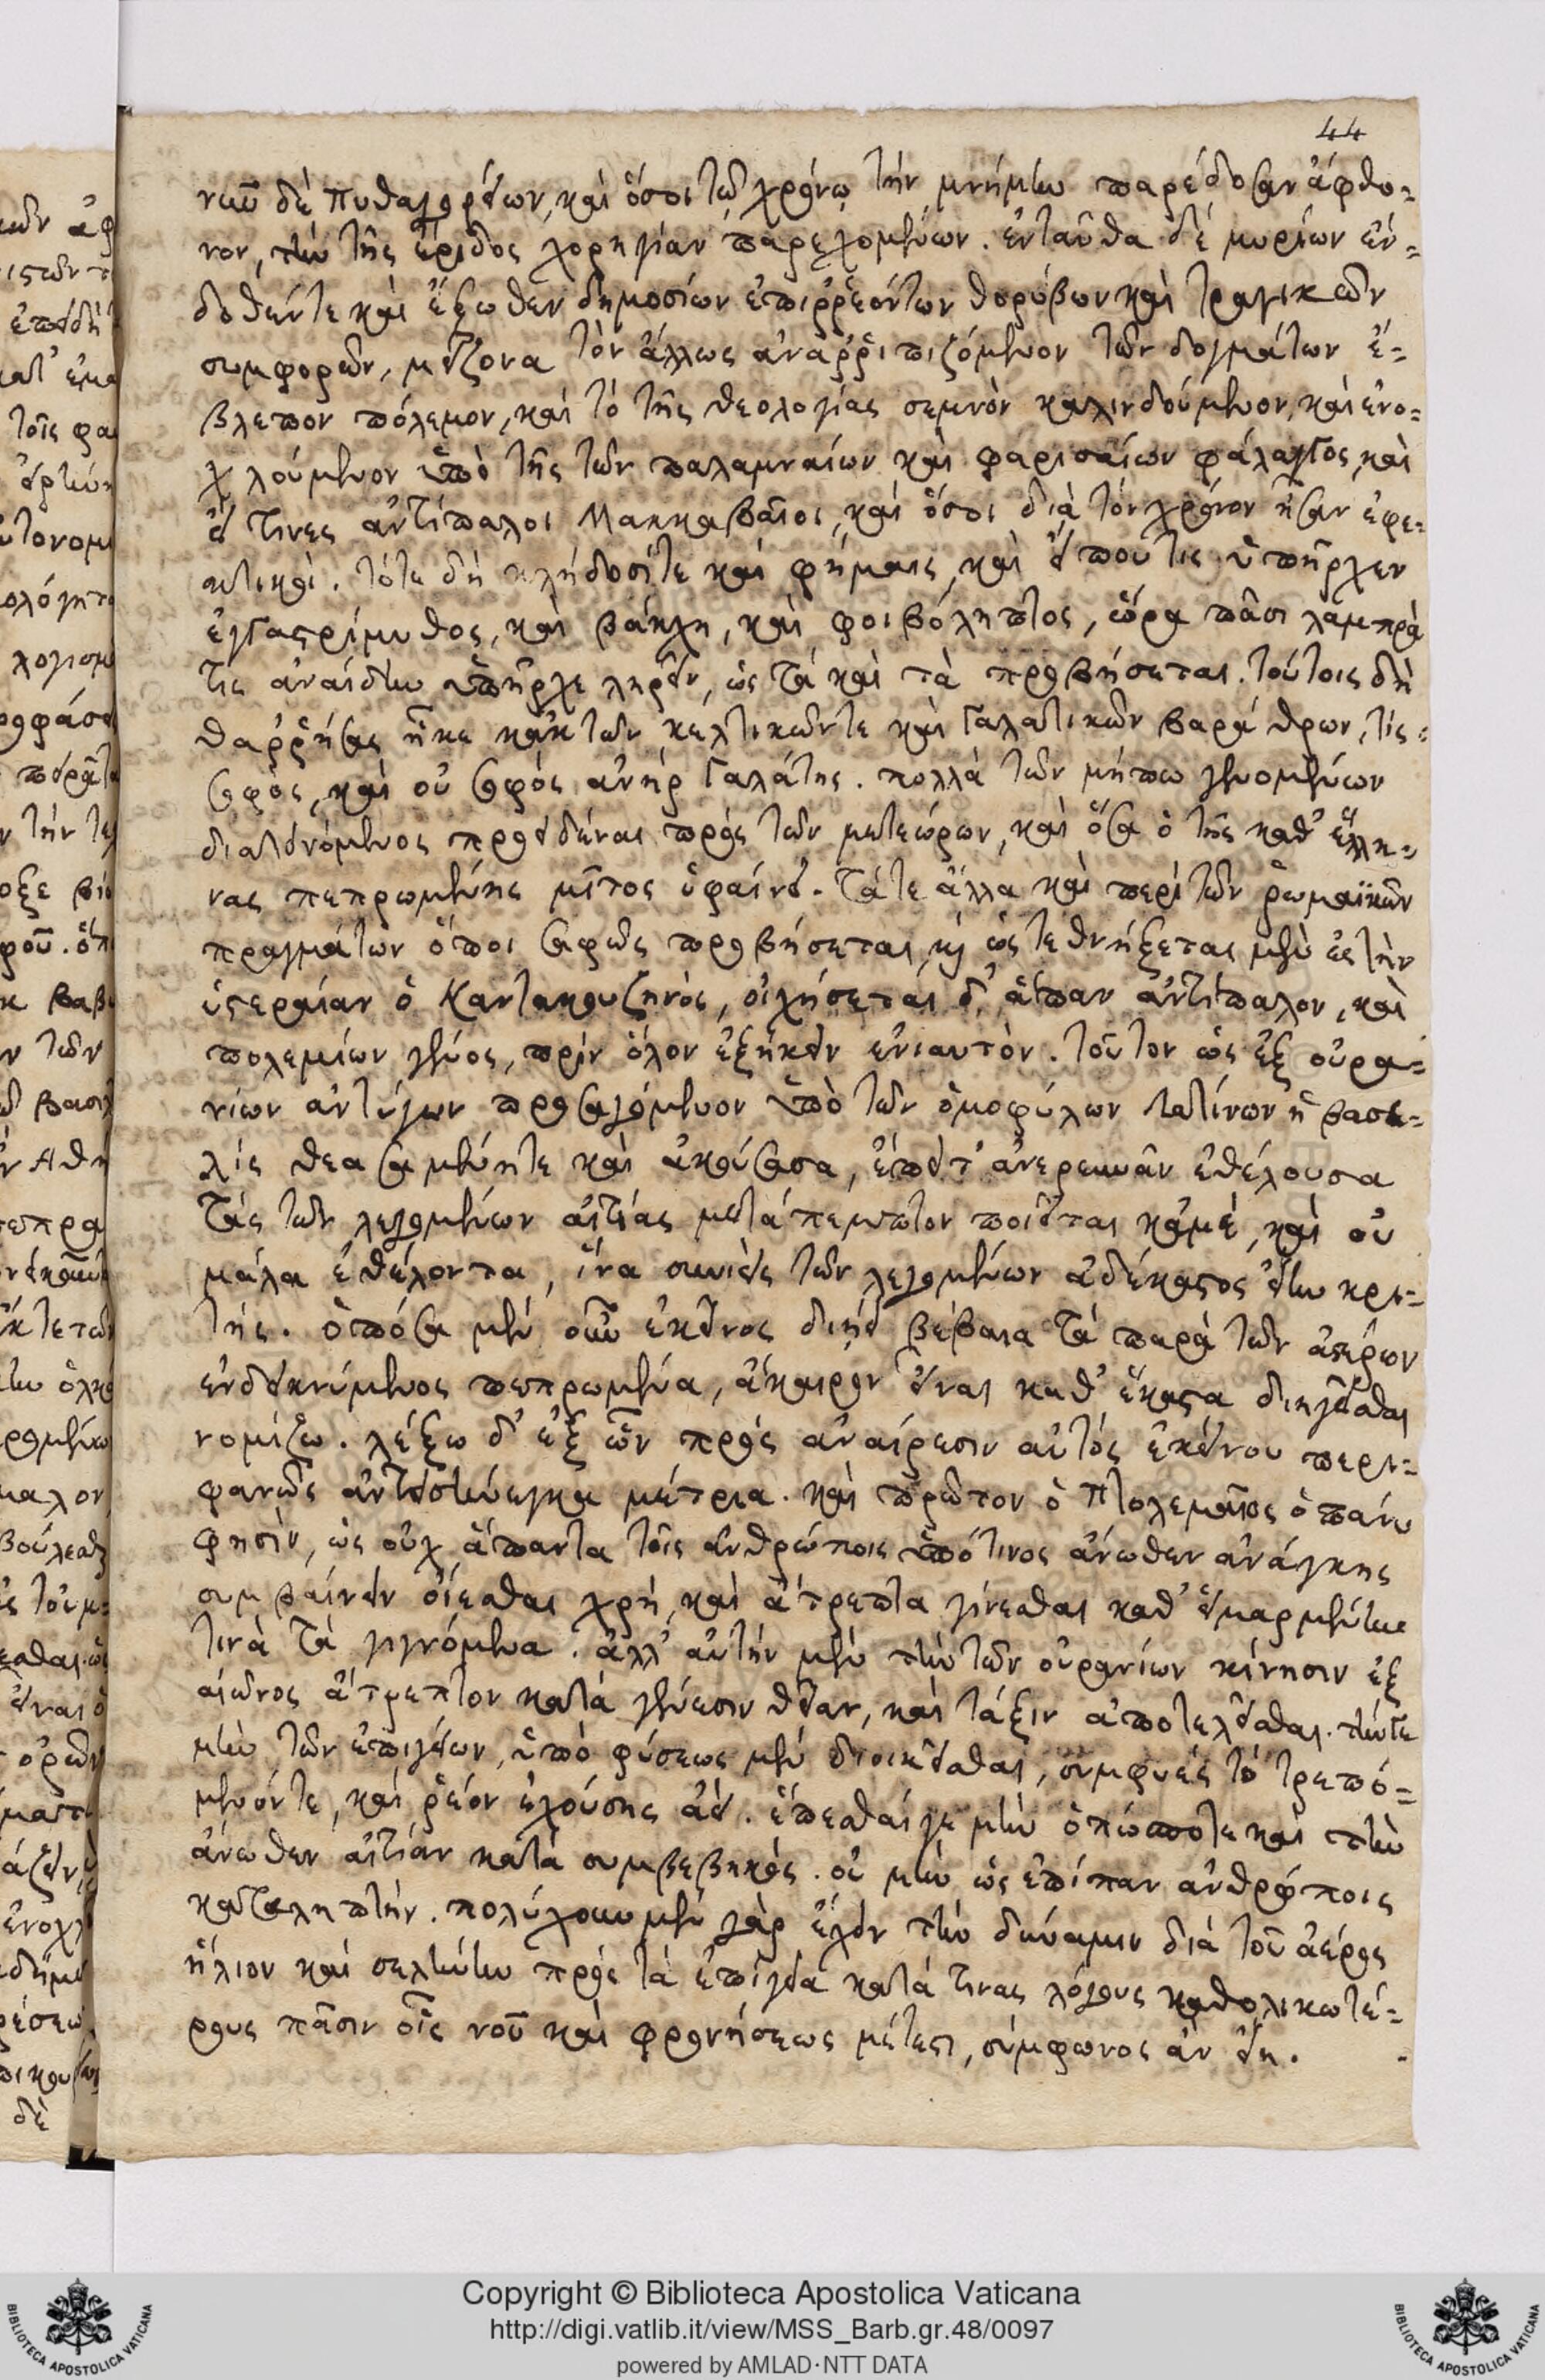 44
νων δὲ Πυθαγορείων, καὶ ὅσοι τῷ χρόνῳ τὴν μνήμην παρέδοσαν ἄφθο-
νον, τὴν τῆς ἔριδος χορηγίαν παρεχομένων. ἐνταῦθα δὲ μυρίων ἔν-
δοθέντε καὶ ἔξωθεν δημοσίων ἐπιρρεόντων θορύβων καὶ τραγικῶν
συμφορῶν, μείζονα τὸν ἄλλως ἀναρριπιζόμενον τῶν δογμάτων ἔ-
βλεπον πόλεμον, καὶ τὸ τῆς θεολογίας σεμνὸν καλινδούμενον, καὶ ἐνο-
χλούμενον ὑπὸ τῆς τῶν παλαμναίων καὶ φαρισαίων φάλαγγος, καὶ
εἴ τινες ἀντίπαλοι Μακκαβαῖοι, καὶ ὅσοι διὰ τὸν χρόνον ἦσαν ἐφε-
κτικοὶ. τότε δὴ κληδοσίτε καὶ φήμαις, καὶ εἴ πού τις ὑπῆρχεν
ἐγγαστρίμυθος, καὶ βάκχη, καὶ φοιβόληπτος, ὥρα πᾶσι λαμπρά
τις ἀναίδην ὑπῆρχε ληρεῖν, ὡς τὰ καὶ τὰ προβήσεται. τούτοις δὴ
θαρρήσας ἧκε κἀκ τῶν κελτικῶντε καὶ Γαλατικῶν βαράθρων, τίς
σοφὸς, καὶ οὐ σοφὸς ἀνὴρ Γαλάτης. πολλὰ τῶν μήπω γενομένων
διατεινόμενος προειδέναι πρὸς τῶν μετεώρων, καὶ ὅσα ὁ τῆς καθ' ἕλλη-
νας πεπρωμένης μῖτος ὑφαίνει. τάτε ἄλλα καὶ περὶ τῶν ῥωμαϊκῶν
πραγμάτων ὅποι σαφῶς προβήσεται, καὶ ὡς τεθνήξεται μὲν ἐς τὴν
ὑστεραίαν ὁ Καντακουζηνός, οἰχήσεται δ' ἅπαν ἀντίπαλον, καὶ
πολεμίων γένος, πρὶν ὅλον ἐξήκειν ἐνιαυτὸν. τοῦτον ὡς ἐξ οὐρα-
νίων ἀντύγων προσαγόμενον ὑπὸ τῶν ὁμοφύλων λατίνων ἡ βασι-
λὶς θεασαμένητε καὶ ἀκούσασα, ἔπειτ' ἀνερευνᾶν ἐθέλουσα
τὰς τῶν λεγομένων αἰτίας μετάπεμπτον ποιεῖται κἀμὲ, καὶ οὐ
μάλα ἐθέλοντα, ἵνα συνιεὶς τῶν λεγομένων ἀδέκαστος εἴην κρι-
τής. ὁπόσα μὲν οὖν ἐκεῖνος διῄει βέβαια τὰ παρὰ τῶν ἀστέρων
ἐνδεικνύμενος πεπρωμένα, ἄκαιρον εἶναι καθ' ἕκαστα διηγεῖσθαι
νομίζω. λέξω δ' ἐξ ὧν πρὸς ἀναίρεσιν αὐτὸς ἐκείνου περι-
φανῶς ἀντεισενήνεγκα μέτρια. καὶ πρῶτον ὁ Πτολεμαῖος ὁ πάνυ
φησὶν, ὡς οὐχ ἅπαντα τοῖς ἀνθρώποις ὑπό τινος ἄνωθεν ἀνάγκης
συμβαίνειν οἴεσθαι χρὴ, καὶ ἄτρεπτα γίνεσθαι καθ' εἱμαρμένην
τινὰ τὰ γιγνόμενα. ἀλλ' αὐτὴν μὲν τὴν τῶν οὐρανίων κίνησιν ἐξ
αἰῶνος ἄτρεπτον κατὰ γένεσιν θείαν, καὶ τάξιν ἀποτελεῖσθαι. τήντε
μὴν τῶν ἐπιγείων, ὑπὸ φύσεως μὲν διοικεῖσθαι, συμφυὲς τὸ τρεπό-
μενόντε, καὶ ῥέον ἐχούσης ἀεί. ἕπεσθαί γε μὴν ὁπώποτε καὶ τὴν
ἄνωθεν αἰτίαν κατὰ συμβεβηκὸς. οὐ μὴν ὡς ἐπίπαν ἀνθρώποις
καταληπτήν. πολύχουν μὲν γὰρ ἔχειν τὴν δύναμιν διὰ τοῦ ἀέρος
ἥλιον καὶ σελήνην πρὸς τὰ ἐπίγεια κατά τινας λόγους καθολικωτέ-
ρους πᾶσιν οἷς νοῦ καὶ φρονήσεως μέτεστι, σύμφωνος ἂν εἴη.
Copyright © Biblioteca Apostolica Vaticana
http://digi.vatlib.it/view/MSS_Barb.gr.48/0097
powered by AMLAD·NTT DATA
BIBLIOTECA APOSTOLICA VATICANA
BIBLIOTECA APOSTOLICA VATICANA